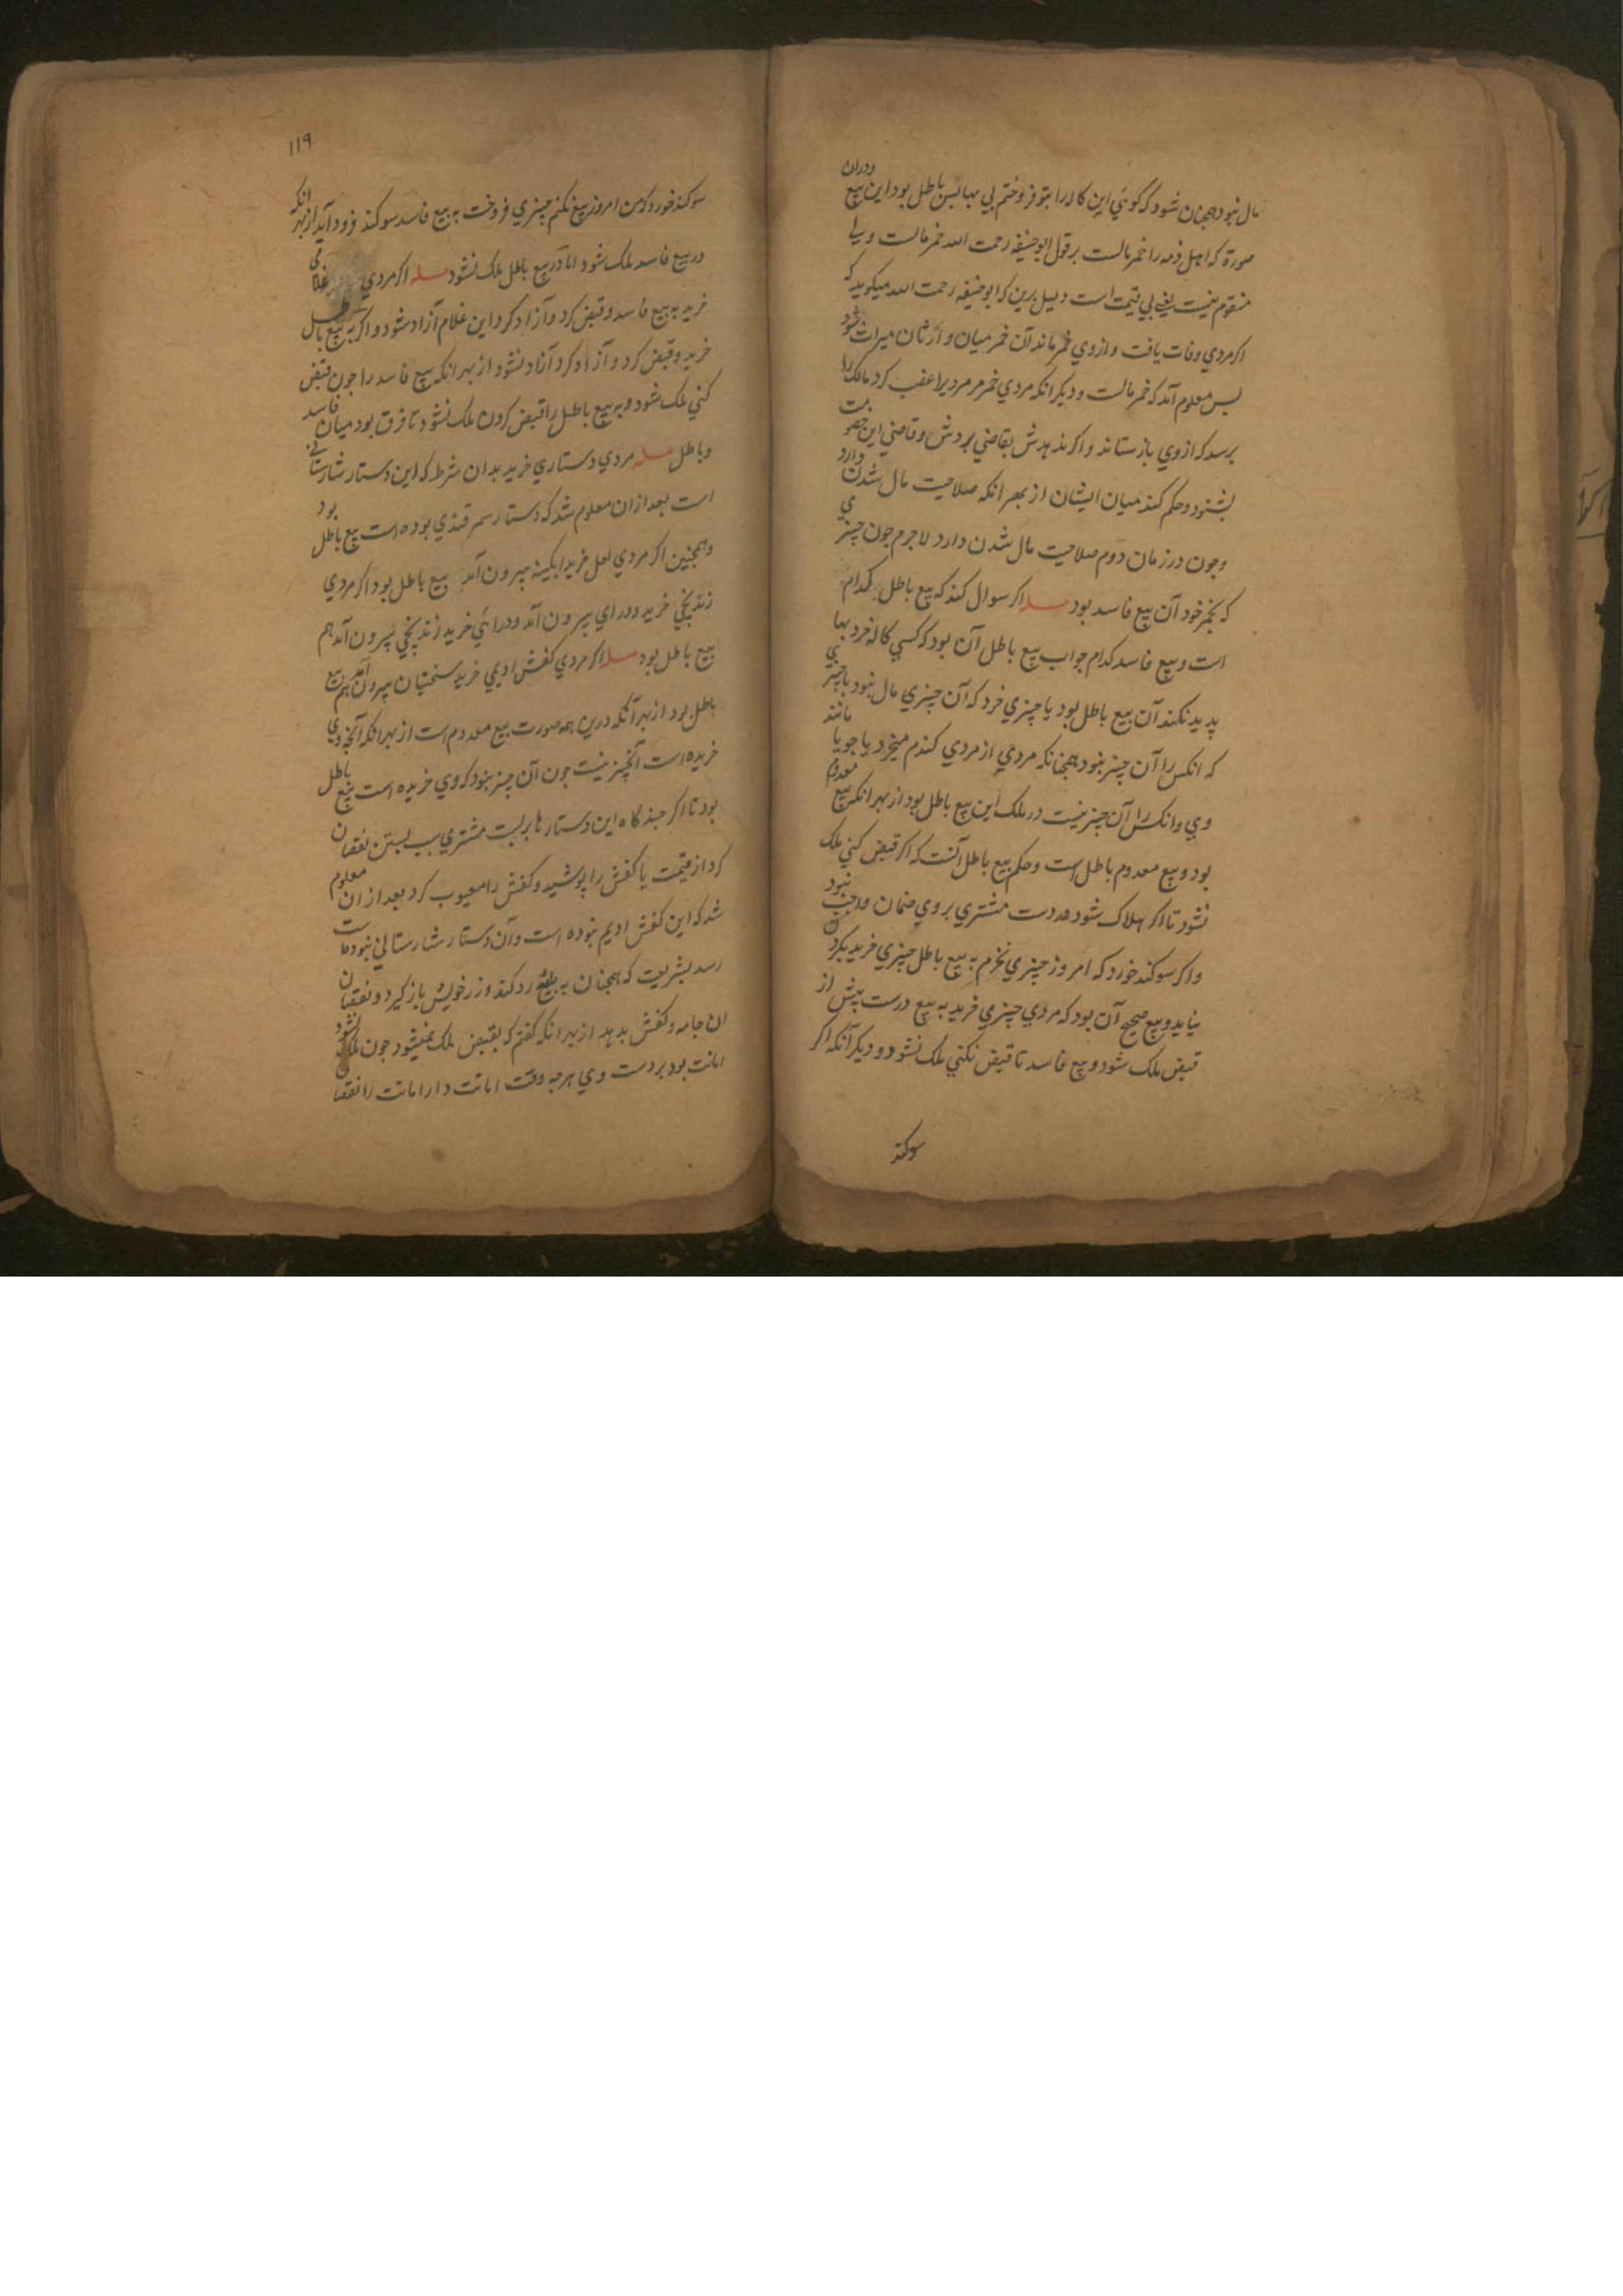 مال نبود همچنان شود که کوئي این کاله را بتو فروختم بي بها بس باطل بود این بیع ودران
صورة که اهل ذمه را خمر مالست بر قول ابوحنیفه رحمت الله خمر مالست ولی
متقوم نیست یعنے بي قیمت است دلیل برین که ابوحنیفه رحمت الله میکوید که
اکر مردي وفات یافت و ازوي خمر ماند آن خمر میان وارثان میراث شود
بس معلوم آمد که خمر مالست و دیکر انکه مردي خمر مر مردیرا غصب کرد مالک را
برسد که ازوي بازستاند و اکر ندهدش بقاضي بردش و قاضي این خصومت
بشنود و حکم کند میان ایشان از بهر انکه صلاحیت مال شدن دارد
وجون در زمان دوم صلاحیت مال شدن دارد لاجرم جون چیزي
که بخمر خود آن بیع فاسد بود مسله اکر سوال کند که بیع باطل کدام
است و بیع فاسد کدام جواب بیع باطل آن بود که کسي کاله خرد بها
پدید نکند آن بیع باطل بود یا چیزي خرد که آن چیزي مال نبود یا چیزي
که انکس را آن چیز نبود همچنانکه مردي از مردي کندم میخرد یا جو یا مانند
وي و انکس را آن چیز نیست در ملک این بیع باطل بود از بهر انکه بیع معدوم
بود و بیع معدوم باطل است و حکم بیع باطل آنست که اکر قبض کني ملک
نشود تا اکر هلاک شود در دست مشتري بر وي ضمان واجب نبود
واکر سوکند خورد که امروز چیزي نخرم به بیع باطل چیزي خرید بکردن
نیاید و بیع صحیح آن بود که مردي چیزي خرید به بیع درست پیش از
قبض ملک شود و بیع فاسد تا قبض نکني ملک نشود و دیکر آنکه اکر
سوکند
۱۱۹
سوکند خورد که من امروز بیع نکنم چیزي فروخت به بیع فاسد سوکند فرود آید از بهر انکه
در بیع فاسد ملک شود اما در بیع باطل ملک نشود مسله اکر مردي غلامی
خرید به بیع فاسد و قبض کرد و آزاد کرد این غلام آزاد شود و اکر به بیع باطل
خرید و قبض کرد و آزاد کرد آزاد نشود از بهر انکه بیع فاسد را جون قبض
کني ملک شود و به بیع باطل را قبض کردن ملک نشود تا فرق بود میان فاسد
و باطل مسله مردي دستاري خرید بدان شرط که این دستار شارستاني
است بعد ازان معلوم شد که دستار سمرقندي بوده است بیع باطل بود
و همچنین اکر مردي لعل خرید ابکینه بیرون آمد بیع باطل بود اکر مردي
زندپیچي خرید ودراي بیرون آمد ودرائي خرید زندپیچي بیرون آمد هم
بیع باطل بود مسله اکر مردي کفش ادیمي خرید سختیان بیرون آمد هم بیع
باطل بود از بهر آنکه درین همه صورت بیع معدوم است از بهر انکه آنچه وي
خریده است آنچیز نیست جون آن چیز نبود که وي خریده است بیع باطل
بود تا اکر جندکاه این دستار ها بر بست مشتري سبب بستن نقصان
کرد از قیمت یا کفش را پوشید و کفش را معیوب کرد بعد از ان معلوم
شد که این کفش ادیم نبوده است و آن دستار شارستاني نبوده است
رسد بشریعت که همچنان به بایع رد کند و زر خویش باز کیرد و نقصان
ان جامه و کفش بدهد از بهر انکه کفتم که بقبض ملک نمیشود جون ملک نشود
امانت بود بر دست وي هرجه وقت امانت دار امانت را نقصان